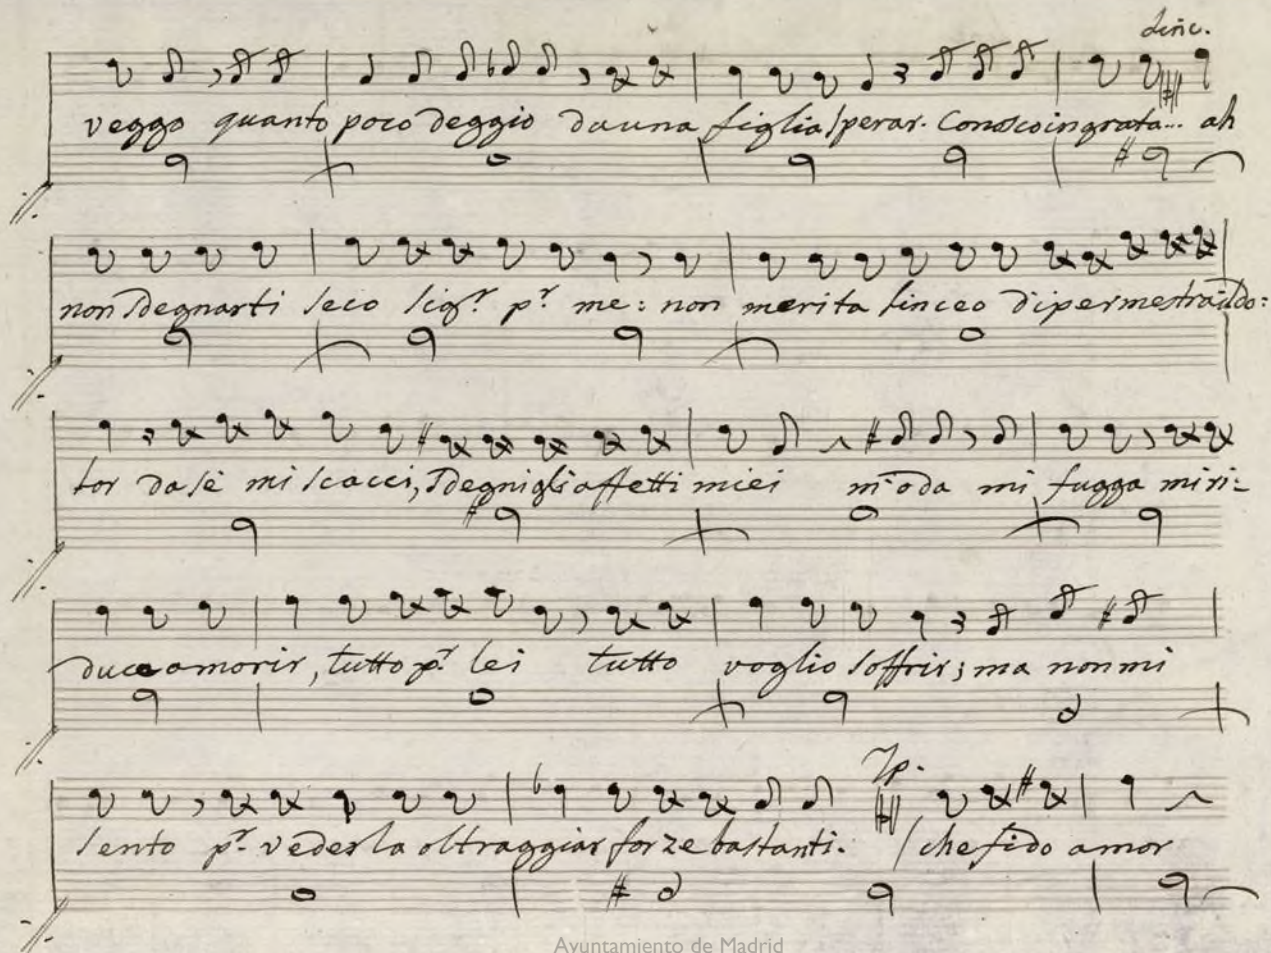 Linc.
veggo quanto poco deggio da una figlia sperar. Conosco ingrata... ah
non sdegnarti seco sigr. pr. me: non merita Linceo d'ipermestra il do:
lor da se mi scacci, sdegni gli affetti miei m'oda mi fugga mi ri:
duca a morir, tutto pr. lei tutto voglio soffrir; ma non mi
Ip.
sento pr. vederla oltraggiar forze bastanti. (che fido amor
Ayuntamiento de Madrid